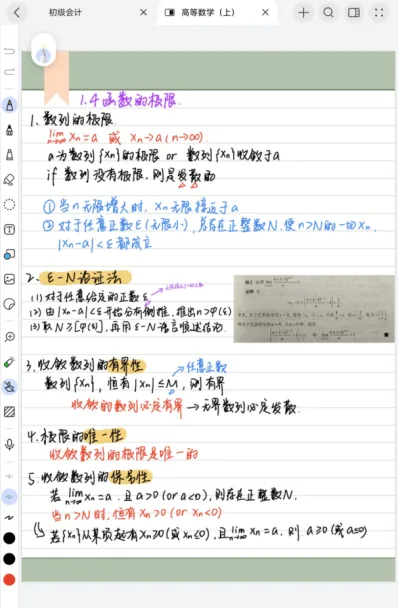 初级会计
高等数学（上）
1.4 函数的极限
1、数列的极限
lim n→∞ xn=a 或 xn→a(n→∞)
a为数列{xn}的极限 or 数列{xn}收敛于a
if 数列没有极限，则是发散的
① 当n无限增大时，xn无限接近于a
② 对于任意正数ε(无限小)，总存在正整数N，使n>N的一切xn，
|xn-a|<ε都成立
2、ε-N论证法
(1)对于任意给定的正数ε
(2)由|xn-a|<ε开始分析倒推，推出n>φ(ε)
(3)取N≥[φ(ε)]，再用ε-N语言顺述结论
3、收敛数列的有界性
任意正数
数列{xn}，恒有|xn|≤M，则有界
收敛的数列必定有界→无界数列必定发散
4、极限的唯一性
收敛数列的极限是唯一的
5、收敛数列的保号性
若 lim n→∞ xn=a，且a>0(or a<0)，则存在正整数N，
当n>N时，恒有xn>0(or xn<0)
若{xn}从某项起有xn≥0(或xn≤0)，且lim n→∞ xn=a，则a≥0(或a≤0)